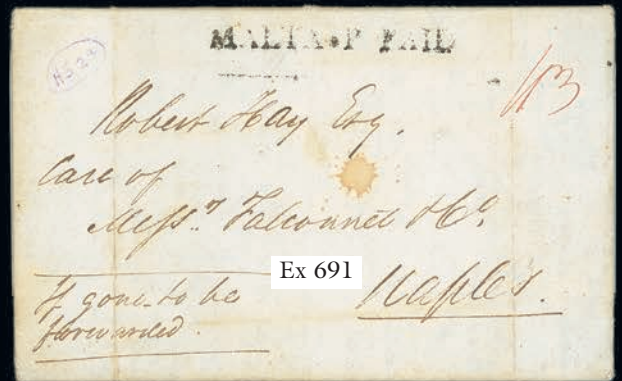 MALTA•P PAID
HS 29
Robert Hay Esq.
Care of
Messrs. Falconnet & Co.
Ex 691
Naples.
If gone to be
forwarded.